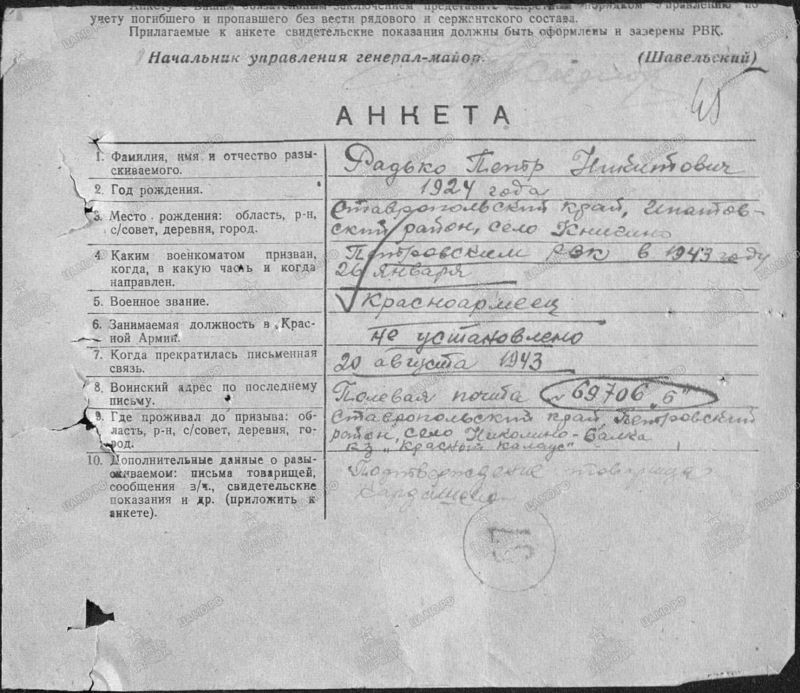 Анкету с Вашим обязательным заключением представить секретным порядком Управлению по
учету погибшего и пропавшего без вести рядового и сержантского состава.
Прилагаемые к анкете свидетельские показания должны быть оформлены и заверены РВК.
Начальник управления генерал-майор. (Шавельский)
45
АНКЕТА
1. Фамилия, имя и отчество разыскиваемого. Радько Петр Никитович
2. Год рождения. 1924 года
3. Место рождения: область, р-н, с/совет, деревня, город. Ставропольский край, Ипатов-
ский район, село Книсино
4. Каким военкоматом призван, когда, в какую часть и когда направлен. Петровским РВК в 1943 году
26 января
5. Военное звание. Красноармеец
6. Занимаемая должность в Крас-
ной Армии. не установлено
7. Когда прекратилась письменная
связь. 20 августа 1943
8. Воинский адрес по последнему
письму. Полевая почта 69706 „б"
9. Где проживал до призыва: об-
ласть, р-н, с/совет, деревня, го-
род. Ставропольский край, Петровский
район, село Николино-Балка
кз „Красный Калаус"
10. Дополнительные данные о разы-
скиваемом: письма товарищей,
сообщения з/ч., свидетельские
показания и др. (приложить к
анкете). Подтверждение товарища
37